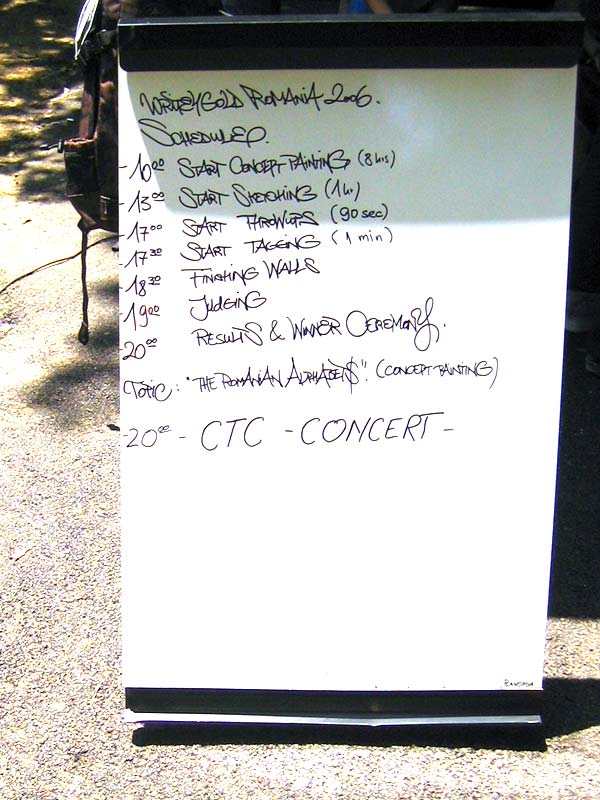 WRITE4GOLD ROMANIA 2006.
SCHEDULE.
-10⁰⁰ START CONCEPT-PAINTING (8 hrs)
-13⁰⁰ START SKETCHING (1 hr)
-17⁰⁰ START THROWUPS (90 sec)
-17³⁰ START TAGGING (1 min)
-18³⁰ FINISHING WALLS
-19⁰⁰ JUDGING
-20⁰⁰ RESULTS & WINNER CEREMONY.
TOPIC: "THE ROMANIAN ALPHABETS". (CONCEPT-PAINTING)
-20⁰⁰ - CTC - CONCERT -